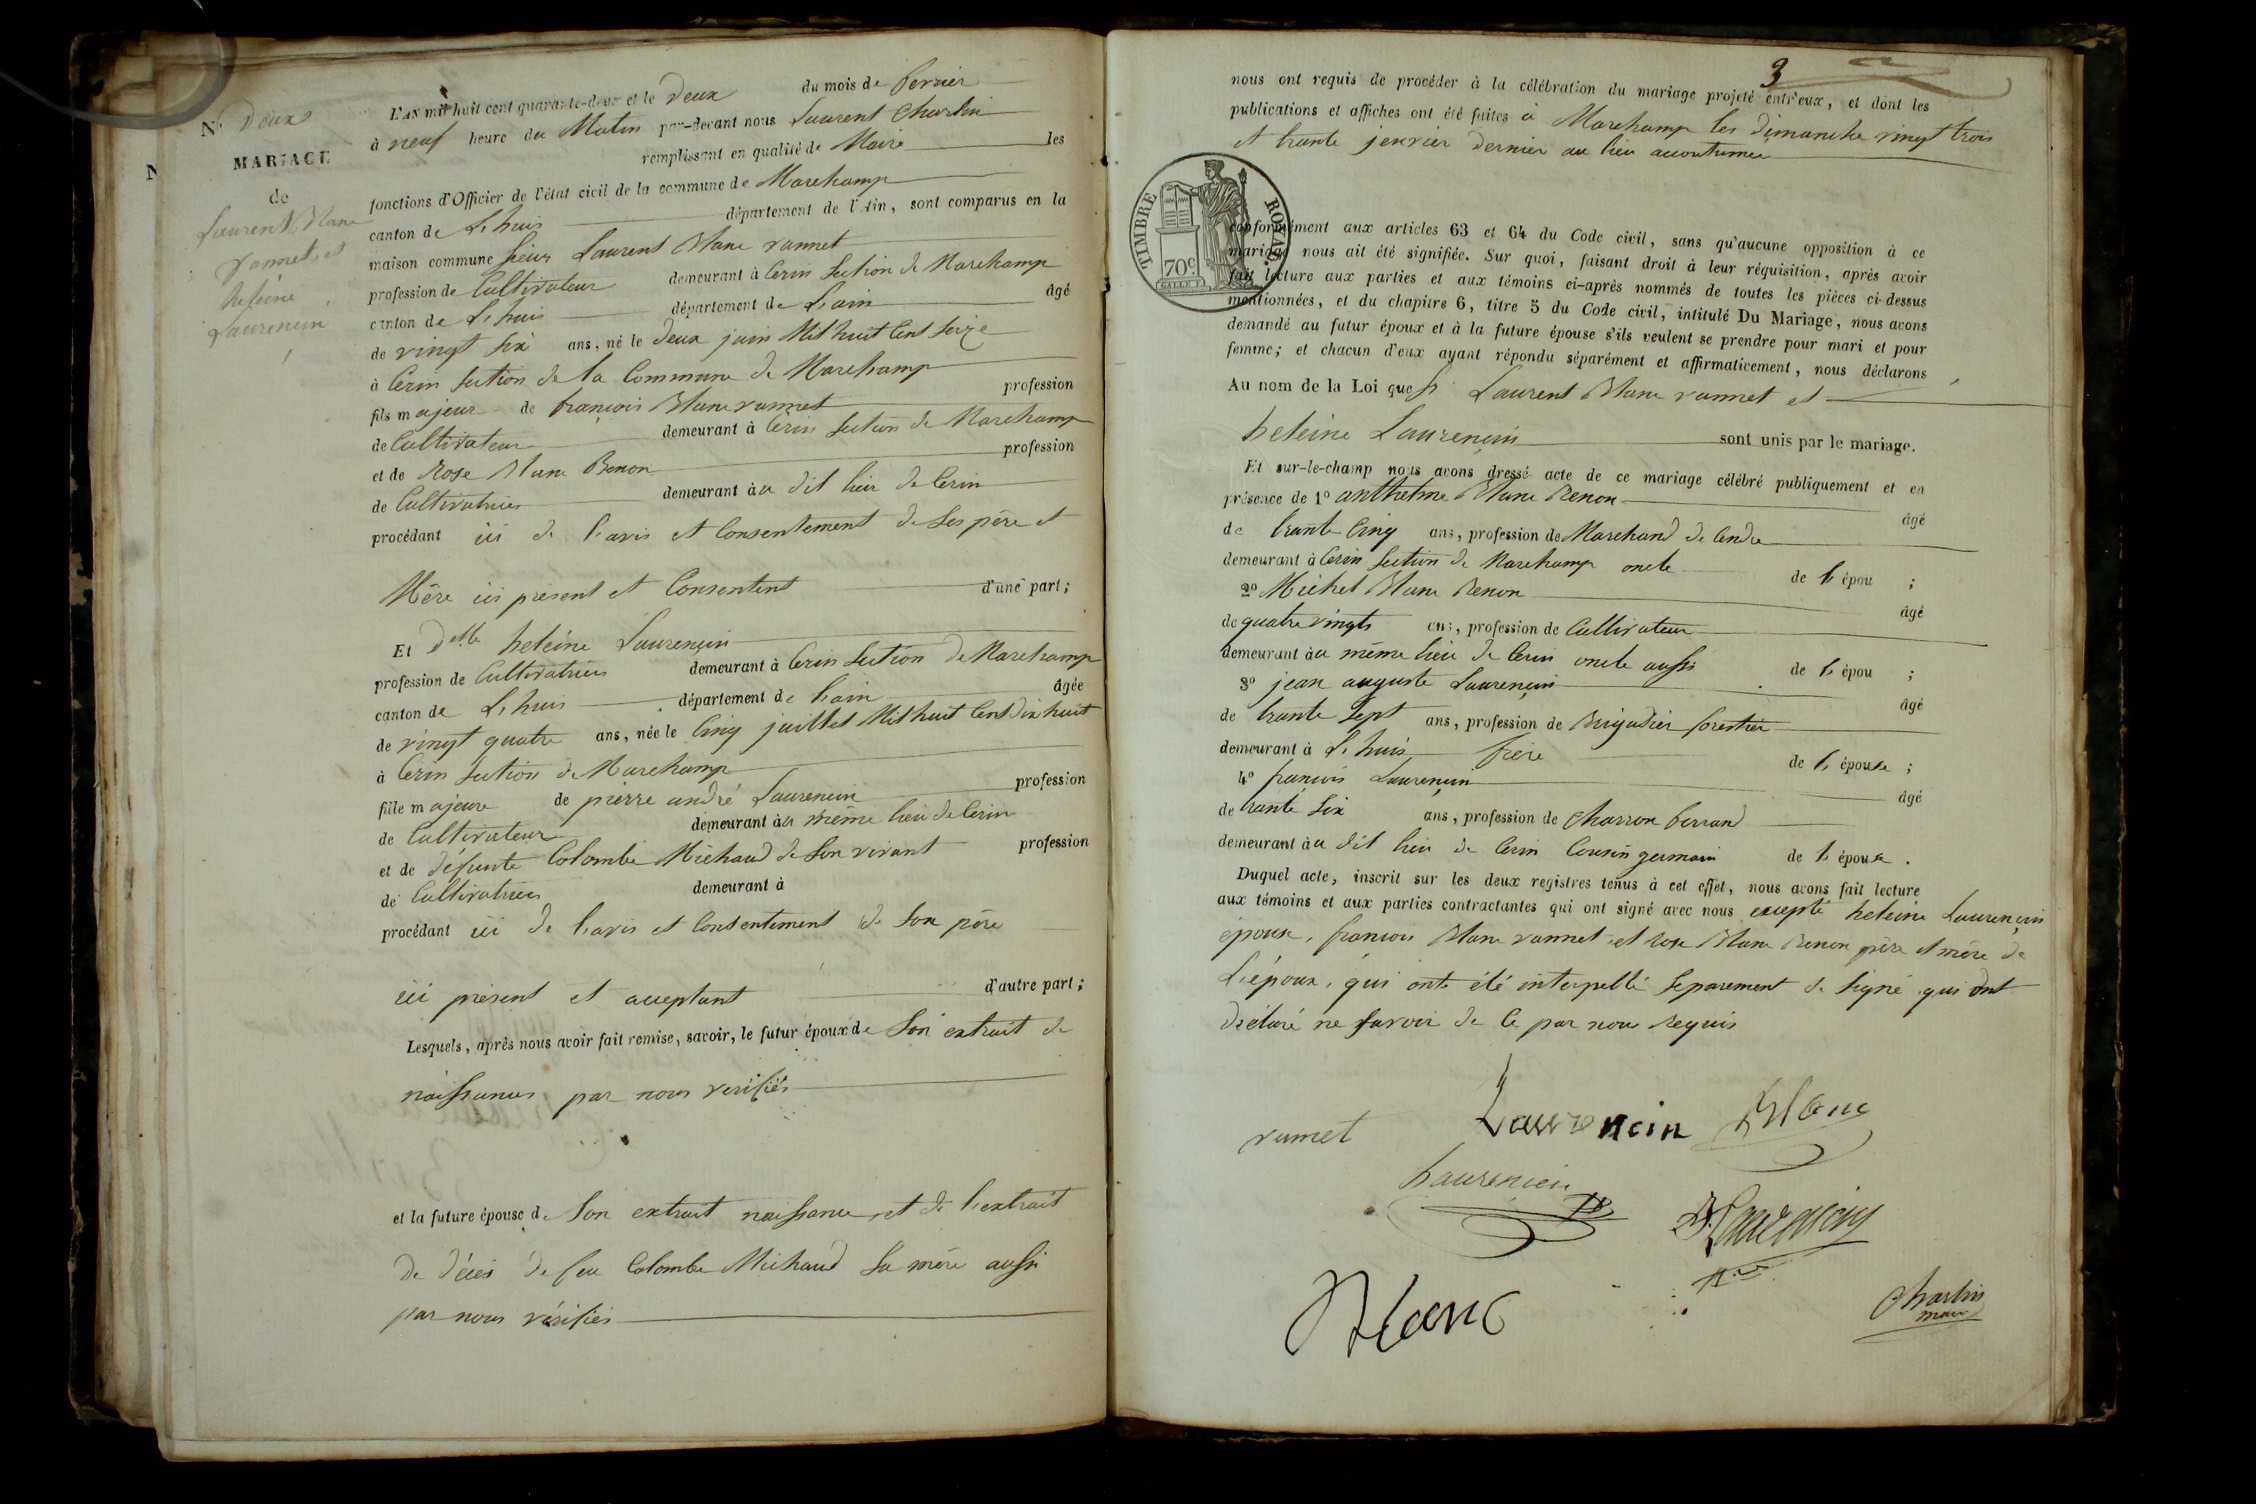 N° Deux
MARIAGE
de
Laurent Blanc
vannet et
heleine
Laurencin
L'AN mil huit cent quarante-deux et le Deux du mois de fevrier
à neuf heure du Matin par-devant nous Laurent Charlin
remplissant en qualité de Maire les
fonctions d'Officier de l'état civil de la commune de Marchamp
canton de L'huis département de l'Ain, sont comparus en la
maison commune sieur Laurent Blanc vannet
profession de Cultivateur demeurant à Cerin section de Marchamp
canton de L'huis département de L'ain âgé
de vingt six ans, né le deux juin Mil huit Cent seize
à Cerin section de la Commune de Marchamp
fils majeur de françois Blanc vannet profession
de Cultivateur demeurant à Cerin section de Marchamp
et de Rose Blanc Benon profession
de Cultivatrice demeurant àu dit lieu de Cerin
procédant ici de l'avis et Consentement de ses père et
Mère ici présent et Consentent d'une part;
Et Delle heleine Laurençin
profession de Cultivatrice demeurant à Cerin section de Marchamp
canton de L'huis département de L'ain âgée
de vingt quatre ans, née le Cinq juillet Mil huit Cent dix huit
à Cerin section de Marchamp
fille majeure de pierre andré Laurencin profession
de Cultivateur demeurant àu même lieu de Cerin
et de défunte Colombe Michaud de son vivant profession
de Cultivatrice demeurant à
procédant ici de l'avis et Consentement de son père
ici présent et acceptant d'autre part;
Lesquels, après nous avoir fait remise, savoir, le futur époux de son extrait de
naissances par nous verifiés
et la future épouse de son extrait naissance et de l'extrait
de décès de feu Colombe Michaud sa mère aussi
par nous vérifiés
3
nous ont requis de procéder à la célébration du mariage projeté entr'eux, et dont les
publications et affiches ont été faites à Marchamp les dimanche vingt trois
et trante jenvier dernier au lieu accoutumée
TIMBRE ROYAL
70c
conformément aux articles 63 et 64 du Code civil, sans qu'aucune opposition à ce
mariage nous ait été signifiée. Sur quoi, faisant droit à leur réquisition, après avoir
fait lecture aux parties et aux témoins ci-après nommés de toutes les pièces ci-dessus
mentionnées, et du chapitre 6, titre 5 du Code civil, intitulé Du Mariage, nous avons
demandé au futur époux et à la future épouse s'ils veulent se prendre pour mari et pour
femme; et chacun d'eux ayant répondu séparément et affirmativement, nous déclarons
Au nom de la Loi que Laurent Blanc vannet et
heleine Laurençin sont unis par le mariage.
Et sur-le-champ nous avons dressé acte de ce mariage célébré publiquement et en
présence de 1° anthelme Blanc Benon âgé
de trante Cinq ans, profession de Marchand de Cendre
demeurant à Cerin section de Marchamp oncle de l' épou ;
2° Michel Blanc Benon âgé
de quatre vingts ans, profession de Cultivateur
demeurant àu même lieu de Cerin oncle aussi de l' épou ;
3° jean auguste Laurençin âgé
de trante sept ans, profession de Brigadier forestier
demeurant à L'huis frère de l' épouse ;
4° françois Laurençin âgé
de trante six ans, profession de Charron ferrand
demeurant àu dit lieu de Cerin Cousin germain de l' épouse .
Duquel acte, inscrit sur les deux registres tenus à cet effet, nous avons fait lecture
aux témoins et aux parties contractantes qui ont signé avec nous excepté heleine Laurençin
épouse, françois Blanc vannet et rose Blanc Benon père et mère de
L'époux, qui onts été interpellé separement de signé qui ont
déclaré ne savoir de Ce par nous Requis
vamet Laurencin Blanc
Laurencin
Laurencin
Blanc
Charlin
maire